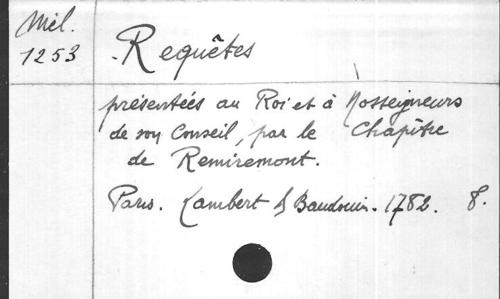 Mél.
1253
Requêtes
présentées au Roi et à Nosseigneurs
de son Conseil, par le Chapître
de Remiremont.
Paris. Lambert & Baudouin. 1782. 8.